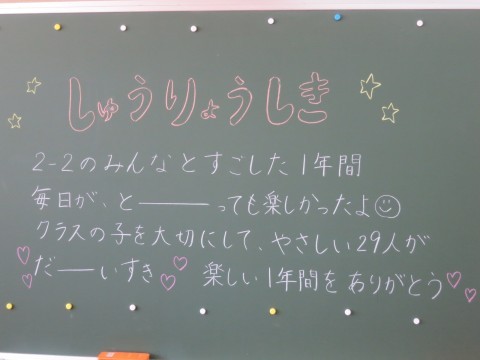 しゅうりょうしき
2-2のみんなとすごした1年間
毎日が、と────っても楽しかったよ☺
クラスの子を大切にして、やさしい29人が
♡だ──いすき♡ 楽しい1年間をありがとう♡